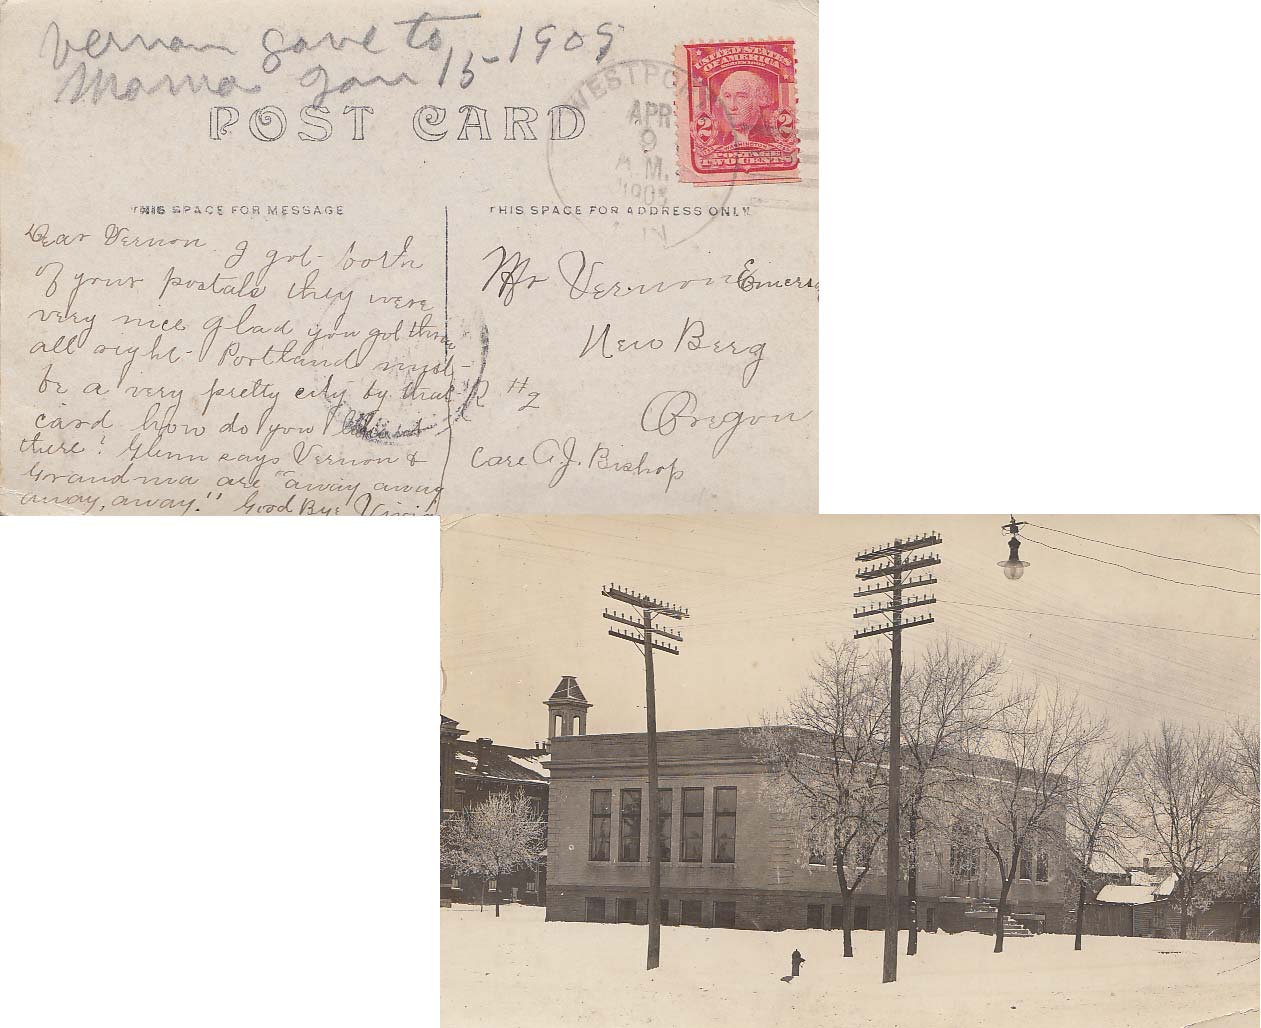 Vernon gave to
Mama Jan 15-1909
POST CARD
WESTPO
APR
9
A.M.
190
IN
UNITED STATES
OF AMERICA
2 2
WASHINGTON
POSTAGE
TWO CENTS
THIS SPACE FOR MESSAGE
THIS SPACE FOR ADDRESS ONLY
Dear Vernon. I got both
of your postals they were
very nice glad you got there
all right. Portland must
be a very pretty city by that
card how do you like it
there? Glenn says Vernon &
Grandma are "away away
away, away." Good Bye
Mr Vernon Emers
New Berg
R #2
Oregon
Care A.J. Bishop